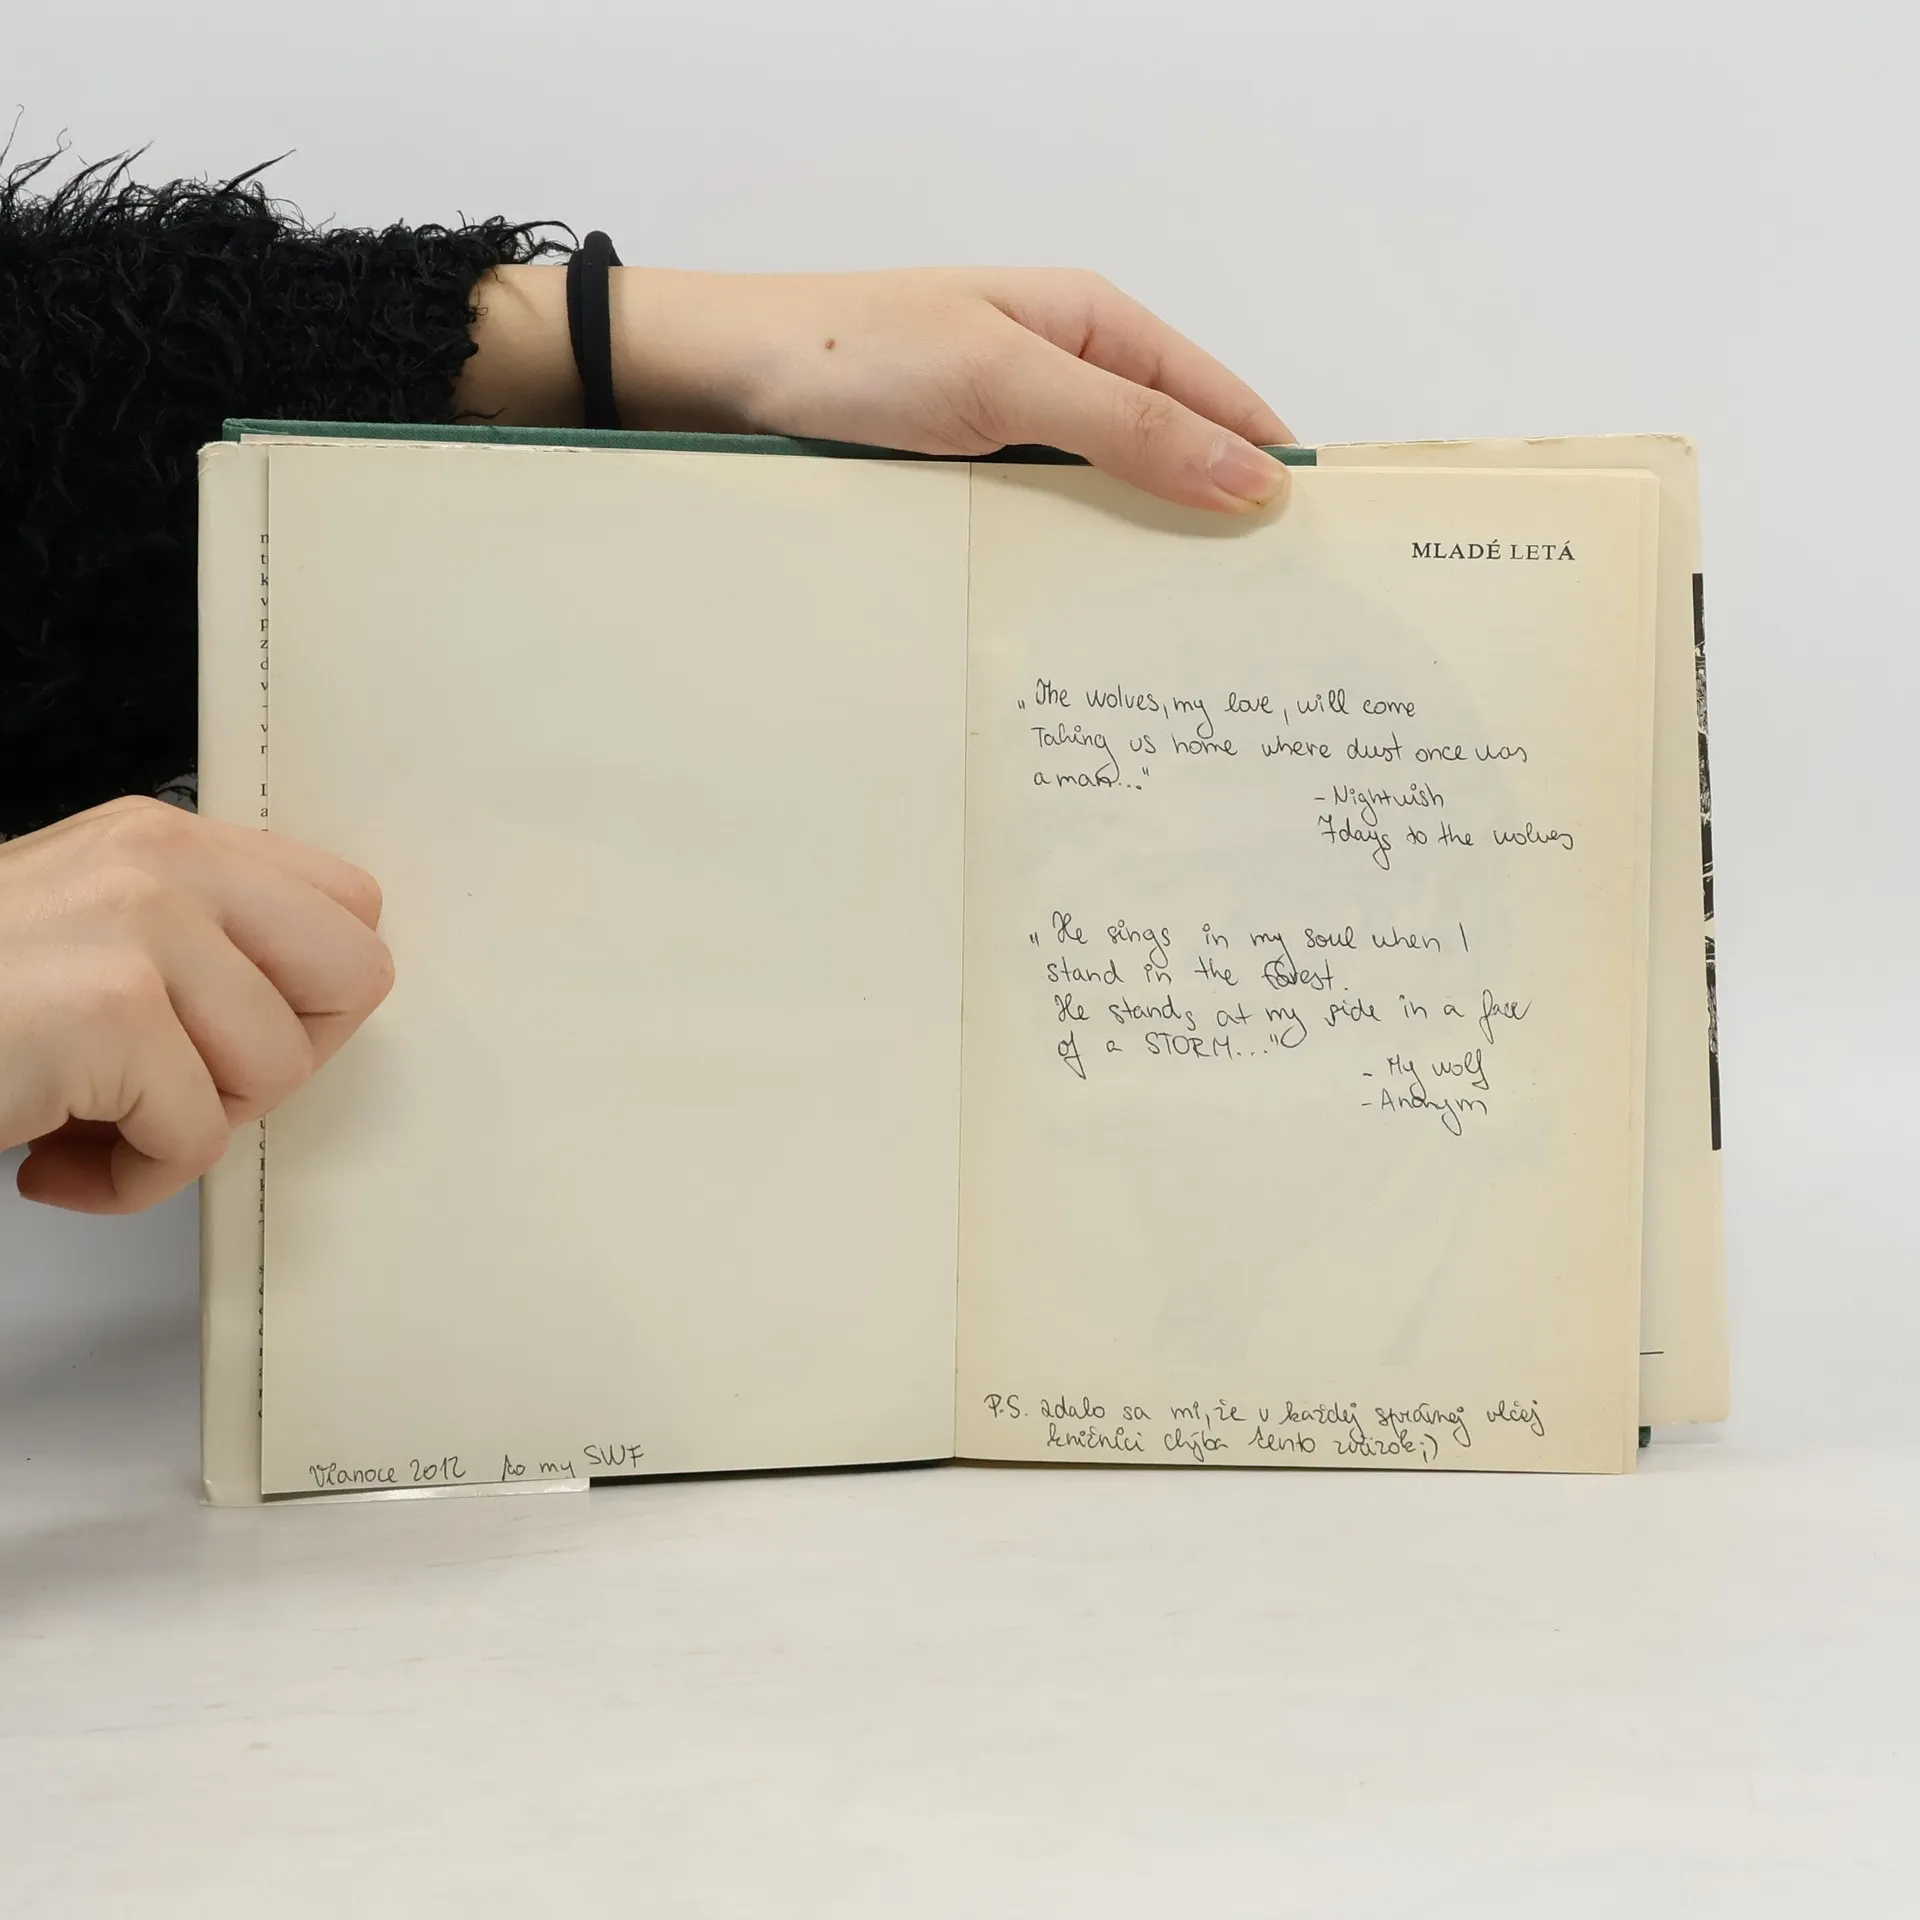 Vianoce 2012 to my SWF
MLADÉ LETÁ
„The wolves, my love, will come
Taking us home where dust once was
a man..."
- Nightwish
7days to the wolves
„He sings in my soul when I
stand in the forest.
He stands at my side in a face
of a STORM..."
- My wolf
- Anonym
P.S. zdalo sa mi, že v každej správnej vlčej
knižnici chýba tento zväzok ;)